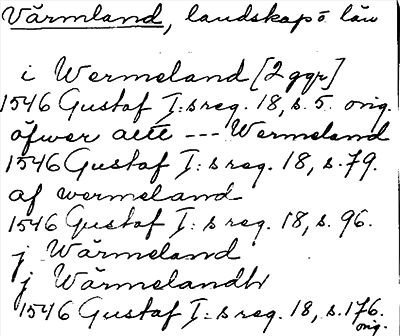 Värmland, landskap o. län
i Wermeland [2 ggr]
1546 Gustaf I:s reg. 18, s. 5. orig.
öfwer alle --- Wermeland
1546 Gustaf I:s reg. 18, s. 79.
af wermeland
1546 Gustaf I:s reg. 18, s. 96.
j Wärmeland
j Wärmelandh
1546 Gustaf I:s reg. 18, s. 176.
orig.